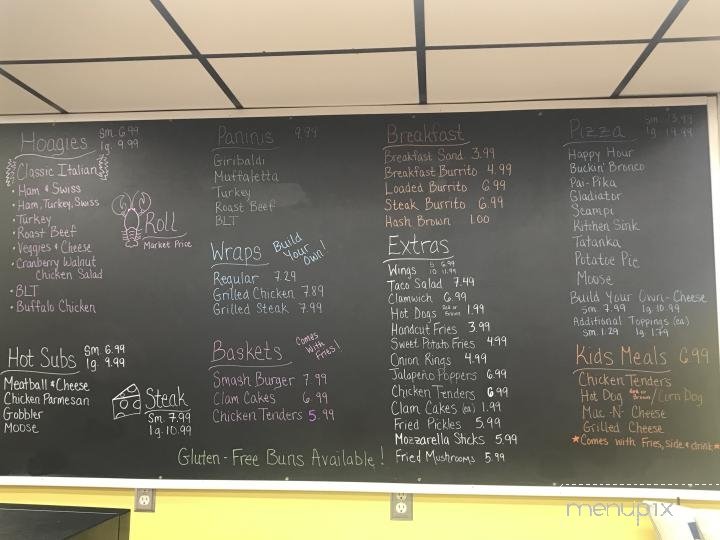 Hoagies sm. 6.99
lg. 9.99
Classic Italian
• Ham & Swiss
• Ham, Turkey, Swiss
• Turkey
• Roast Beef
• Veggies & Cheese
• Cranberry Walnut
Chicken Salad
• BLT
• Buffalo Chicken
Roll
Market Price
Hot Subs sm 6.99
lg. 9.99
Meatball & Cheese
Chicken Parmesan
Gobbler
Moose
Steak
sm. 7.99
lg. 10.99
Paninis 9.99
Giribaldi
Muffaletta
Turkey
Roast Beef
BLT
Wraps Build
Your
Own!
Regular 7.29
Grilled Chicken 7.89
Grilled Steak 7.99
Baskets Comes
with
Fries!
Smash Burger 7.99
Clam Cakes 6.99
Chicken Tenders 5.99
Gluten-Free Buns Available!
Breakfast
Breakfast Sand 3.99
Breakfast Burrito 4.99
Loaded Burrito 6.99
Steak Burrito 6.99
Hash Brown 1.00
Extras
Wings 5 6.99
10 11.99
Taco Salad 7.49
Clamwich 6.99
Hot Dogs Red or Brown 1.99
Handcut Fries 3.99
Sweet Potato Fries 4.99
Onion Rings 4.99
Jalapeño Poppers 6.99
Chicken Tenders 6.99
Clam Cakes (ea) 1.99
Fried Pickles 5.99
Mozzarella Sticks 5.99
Fried Mushrooms 5.99
Pizza sm. 13.99
lg. 19.99
Happy Hour
Buckin' Bronco
Pai-Pika
Gladiator
Scampi
Kitchen Sink
Tatanka
Potatoe Pie
Moose
Build Your Own - Cheese
sm. 7.99 lg. 10.99
Additional Toppings (ea)
sm. 1.29 lg. 1.79
Kids Meals 6.99
Chicken Tenders
Hot Dog Red or Brown / Corn Dog
Mac-N-Cheese
Grilled Cheese
*Comes with Fries, side & drink*
menupix